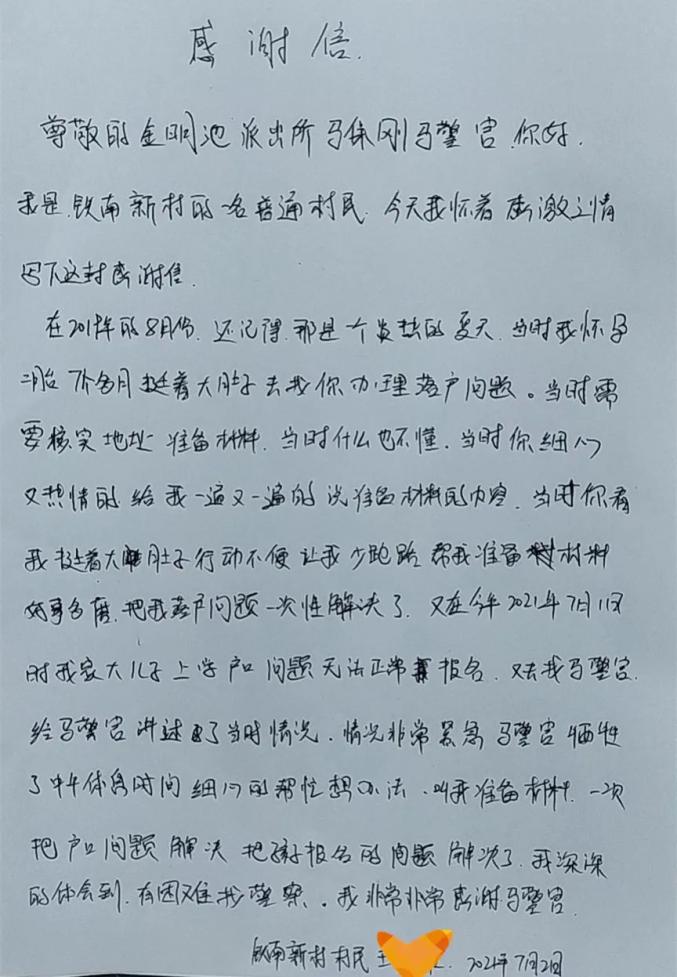 感谢信.
尊敬的金明池派出所马保刚马警官.你好.
我是.铁南新村的一名普通村民.今天我怀着感激之情
写下这封感谢信.
在2019年的8月份.还记得.那是一个炎热的夏天.当时我怀孕
二胎7个多月挺着大肚子去找你办理落户问题。当时需
要核实地址准备材料.当时什么也不懂.当时你细心
又热情的给我一遍又一遍的说准备材料的内容.当时你看
我挺着大肚子行动不便让我少跑路帮我准备材料
好事多磨.把我落户问题一次性解决了.又在今年2021年7月1日
时我家大儿子上学户口问题无法正常报名.又去找马警官.
给马警官讲述了当时情况.情况非常紧急马警官牺牲
了中午休息时间细心的帮忙想办法.叫我准备材料.一次
把户口问题解决把孩子报名的问题解决了.我深深
的体会到.有困难找警察.。我非常非常感谢马警官.
铁南新村村民王 2021年7月2日